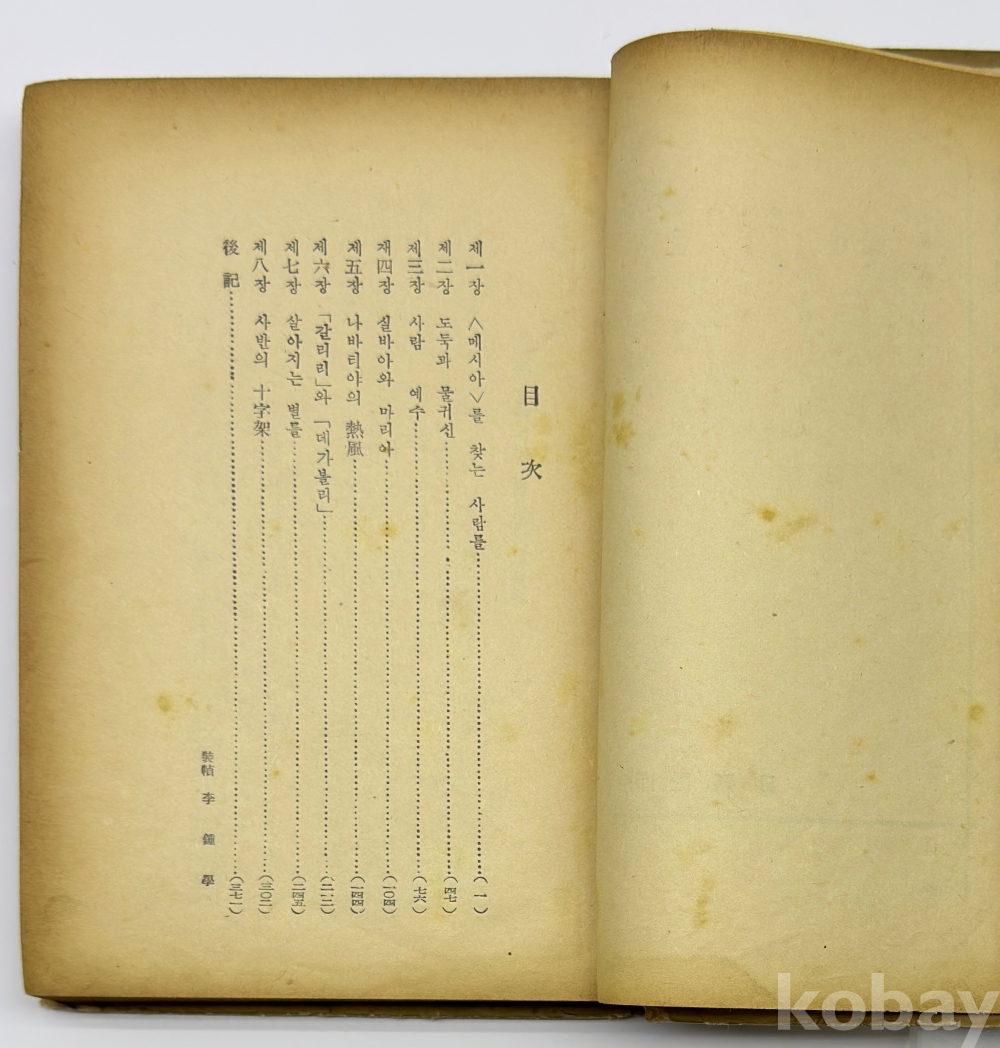 目次
제一장 〈메시아〉를 찾는 사람들……(一)
제二장 도둑과 물귀신……(四七)
제三장 사람 예수……(七六)
재四장 실바아와 마리아……(一〇四)
제五장 나바티야의 熱風……(一四四)
제六장 「갈리리」와 「데가볼리」……(二一二)
제七장 살아지는 별들……(二四五)
제八장 사반의 十字架……(三〇二)
後記……(三七一)
裝幀 李鍾學
kobay